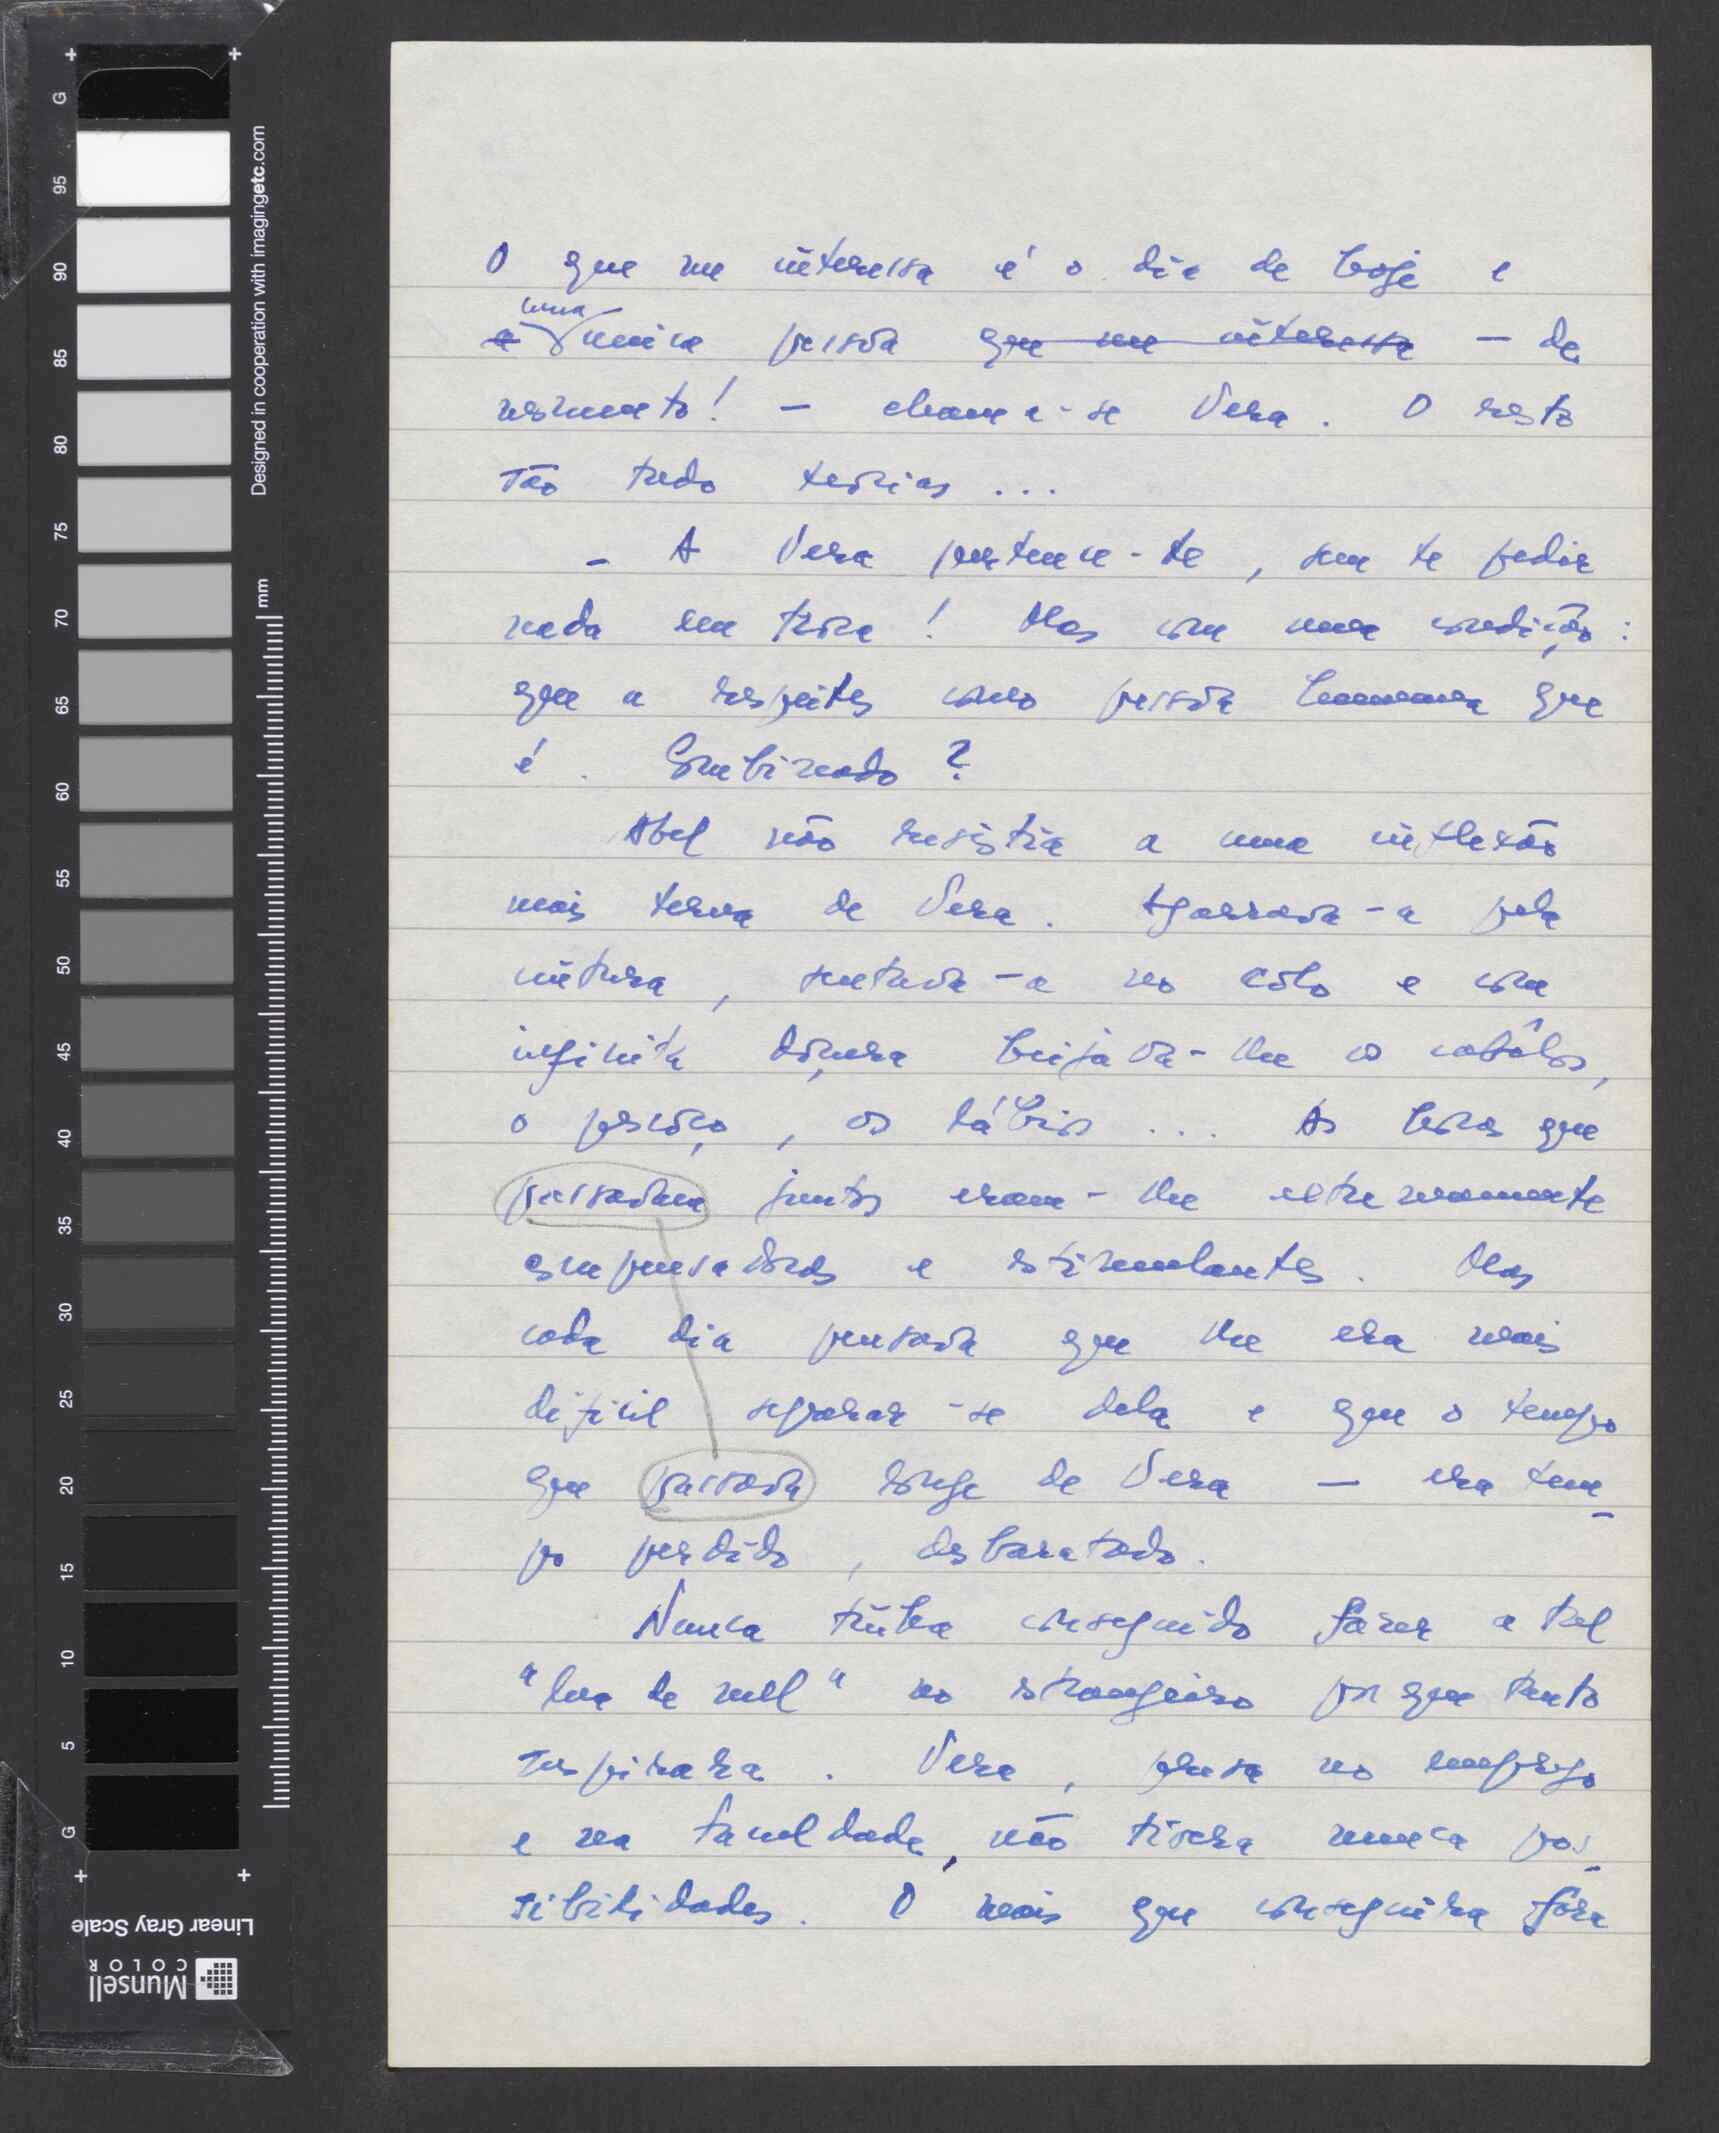 O que me interessa é o dia de hoje e
uma
a unica pessôa que me interessa — de
momento! — chama-se Vera. O resto
são tudo teorias ...
- A Vera pertence-te, sem te pedir
nada em trôca! Mas com uma condição:
que a respeites como pessôa humana que
é. Combinado?
Abel não resistia a uma inflexão
mais terna de Vera. Agarrava-a pela
cintura, sentava-a no côlo e com
infinita doçura beijava-lhe os cabêlos,
o pescôço, os lábios ... As horas que
passavam juntos eram-lhe extremamente
compensadoras e estimulantes. Mas
cada dia pensava que lhe era mais
dificil separar-se dela e que o tempo
que passava longe de Vera — era tem-
po perdido, desbaratado.
Nunca tinha conseguido fazer a tal
"lua de mel" no estrangeiro por que tanto
suspirara. Vera, presa no emprego
e na faculdade, não tivera nunca pos-
sibilidades. O mais que conseguira fôra
G 95 90 85 80 75 70 65 60 55 50 45 40 35 30 25 20 15 10 5 G
Designed in cooperation with imagingetc.com
mm
Linear Gray Scale
Munsell
COLOR